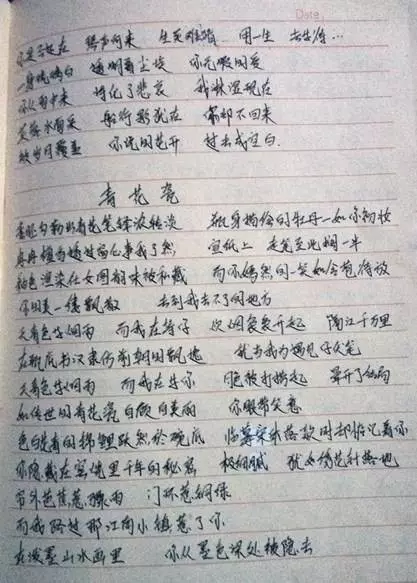 Date
你是否还在 琴声何来 生死难猜 用一生 去等待…
一身琉璃白 透明着尘埃 你无瑕的爱
你从雨中来 诗化了悲哀 我淋湿现在
芙蓉水面采 船行影犹在 你却不回来
被岁月覆盖 你说的花开 过去成空白.
青花瓷
素胚勾勒出青花笔锋浓转淡 瓶身描绘的牡丹一如你初妆
冉冉檀香透过窗心事我了然 宣纸上 走笔至此搁一半
釉色渲染仕女图韵味被私藏 而你嫣然的一笑如含苞待放
你的美一缕飘散 去到我去不了的地方
天青色等烟雨 而我在等你 炊烟袅袅升起 隔江千万里
在瓶底书汉隶仿前朝的飘逸 就当我为遇见你伏笔
天青色等烟雨 而我在等你 月色被打捞起 晕开了结局
如传世的青花瓷自顾自美丽 你眼带笑意
色白花青的锦鲤跃然於碗底 临摹宋体落款时却惦记着你
你隐藏在窑烧里千年的秘密 极细腻 犹如绣花针落地
帘外芭蕉惹骤雨 门环惹铜绿
而我路过那江南小镇惹了你
在泼墨山水画里 你从墨色深处被隐去